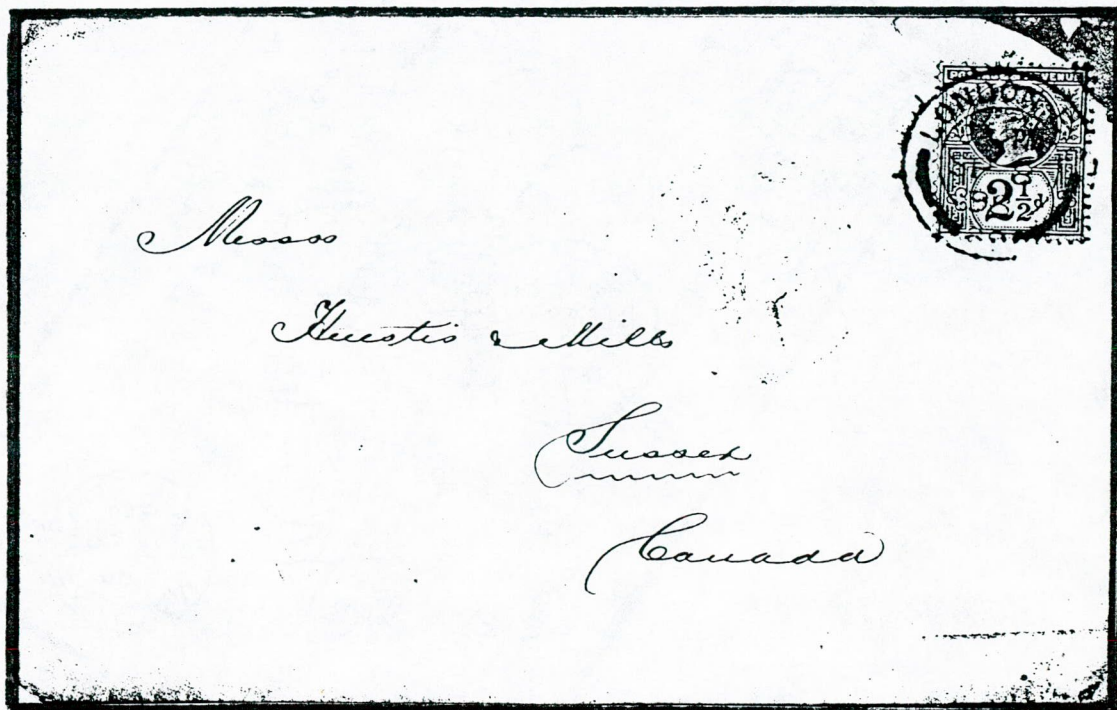 LONDON
2½d
Messrs
Huestis & Mills
Sussex
Canada